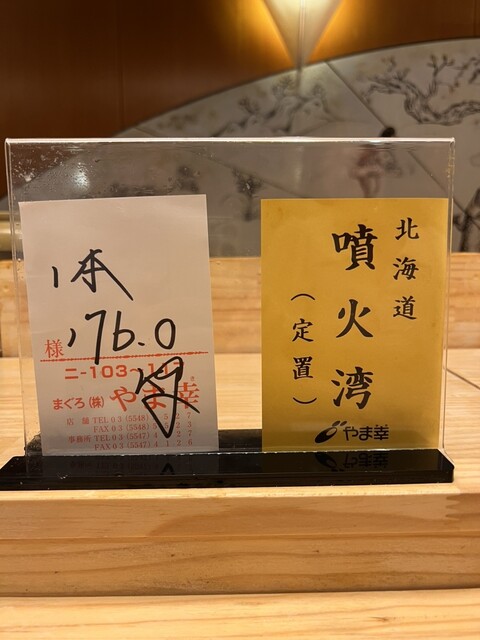 1本
176.0
様
ニ-103-1
まぐろ(株)やま幸
店舗 TEL03(5548)
FAX03(5548)
事務所 TEL03(5547)
FAX03(5547)
北海道
噴火湾
(定置)
やま幸